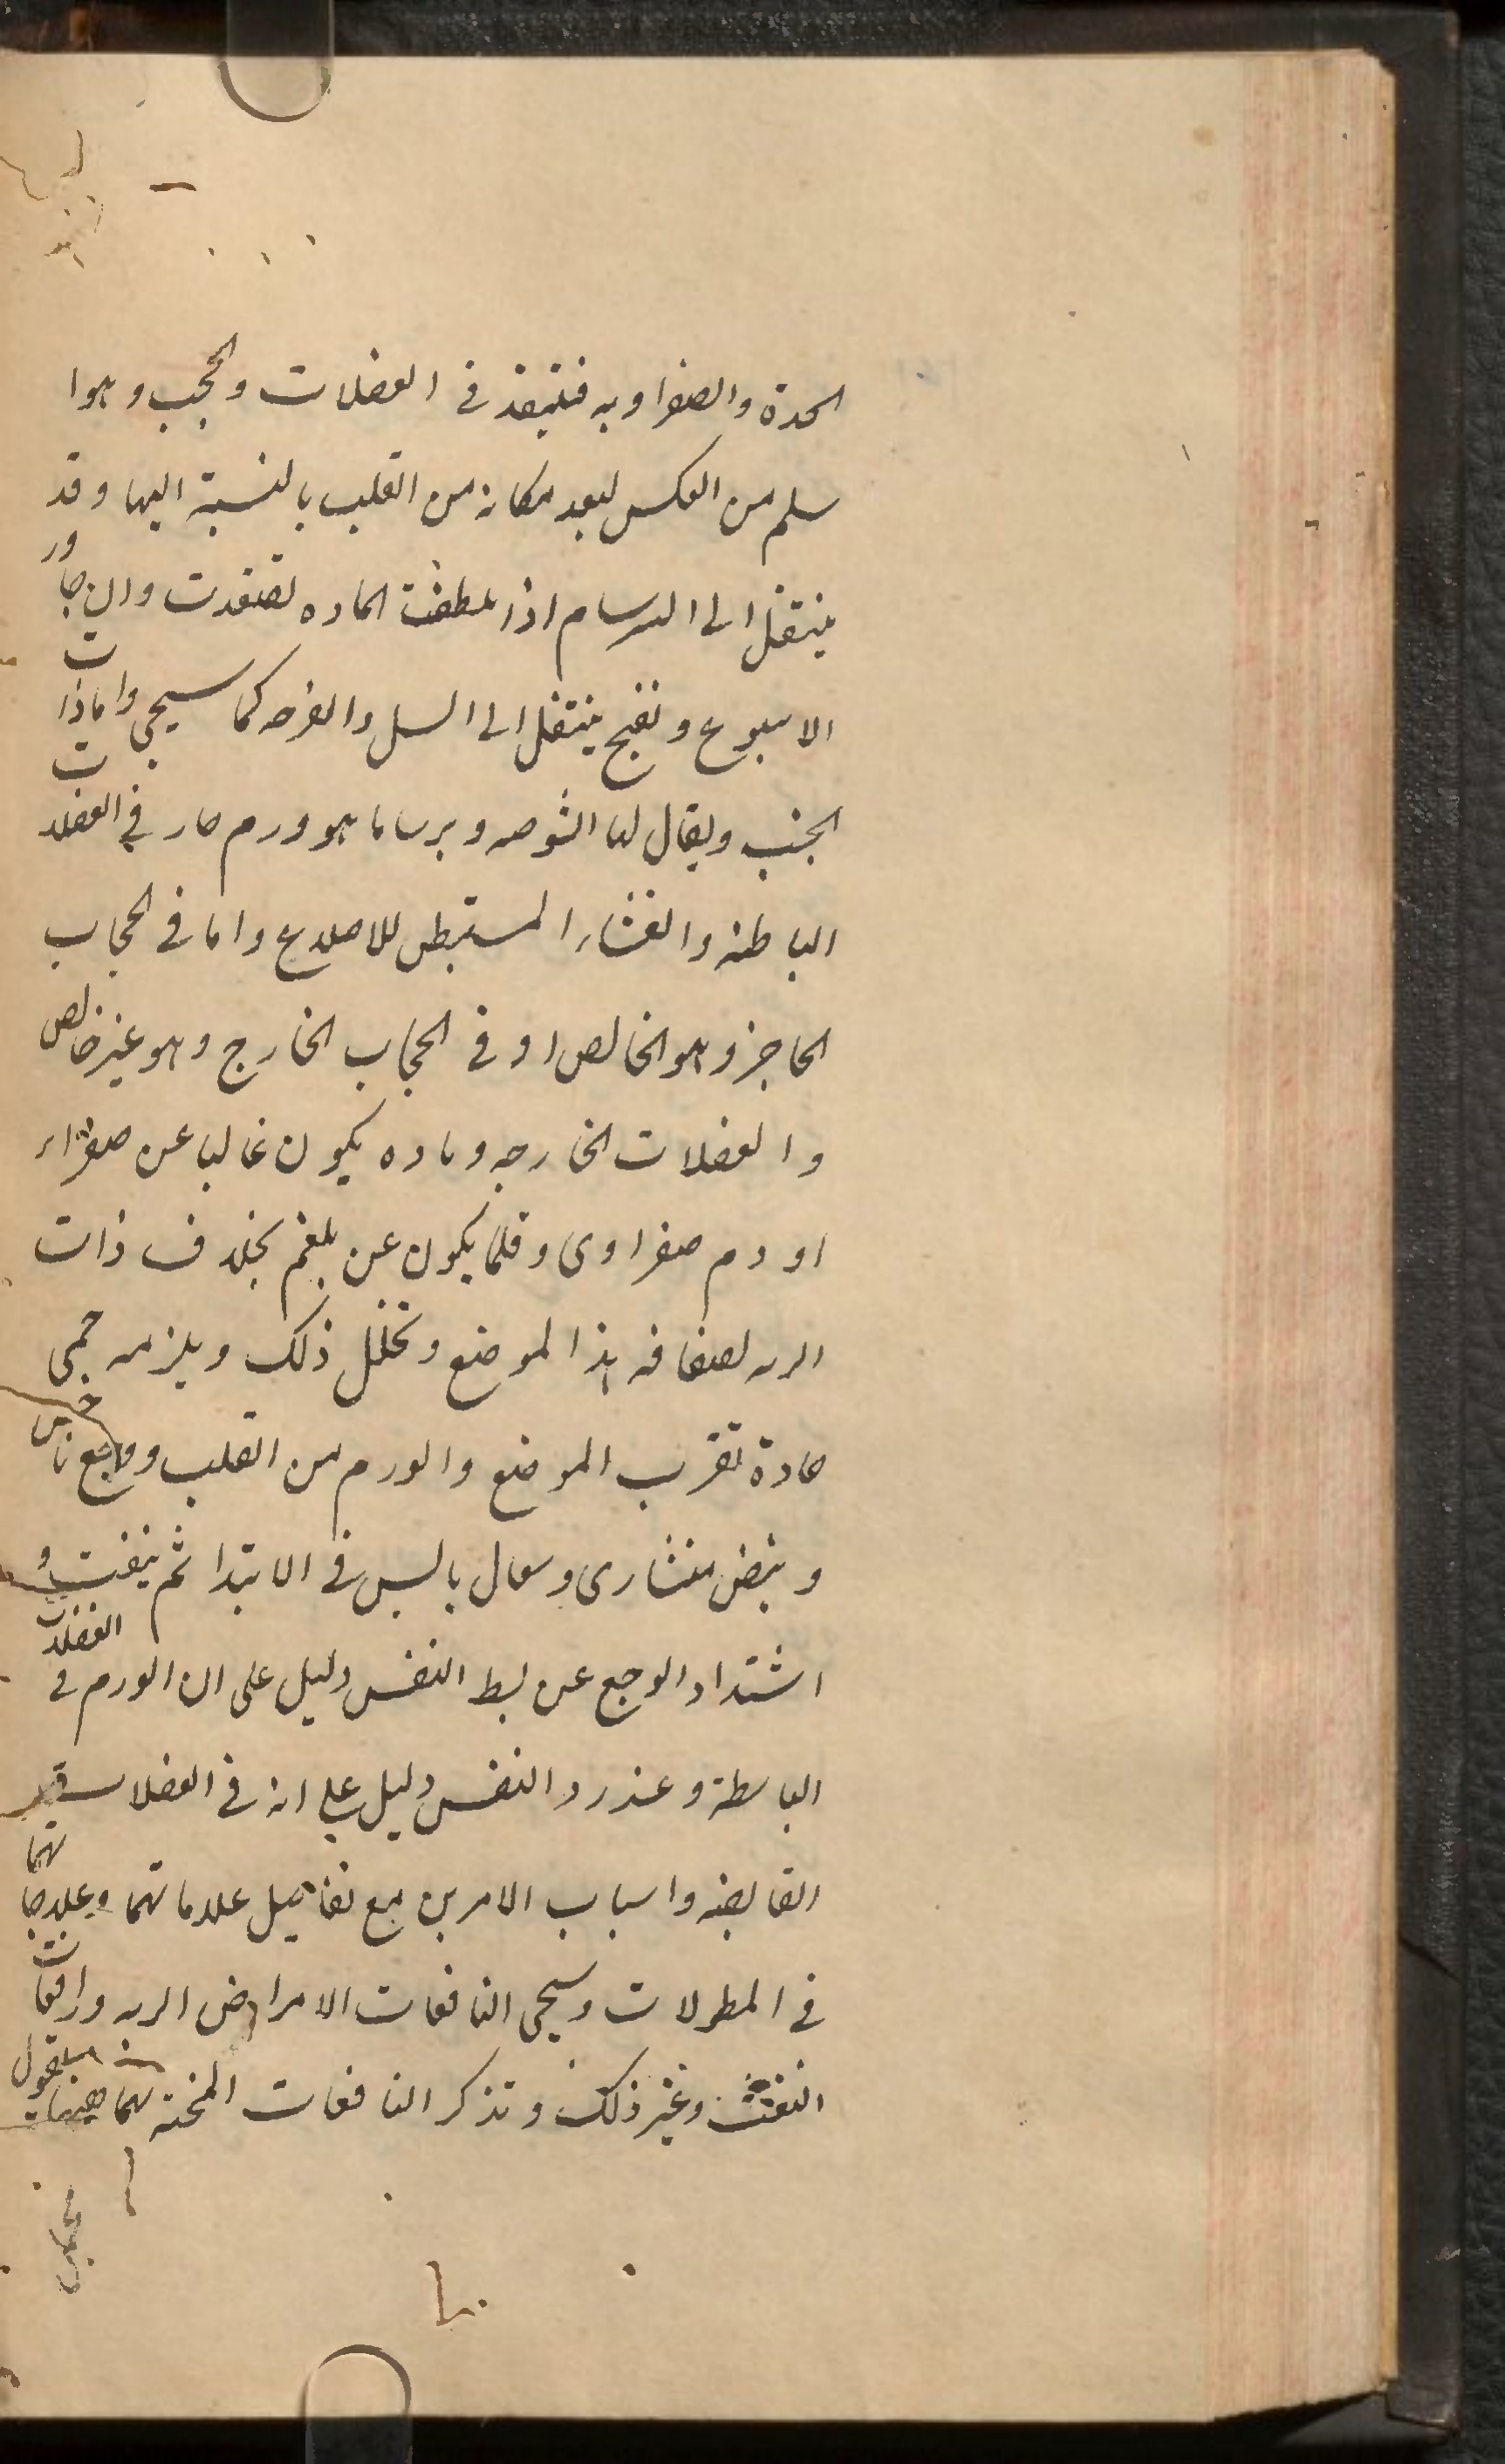 الحدة والصفراويه فتنفذ في العضلات والحجب وهوا
سلم من العكس لبعد مكانه من القلب بالنسبة اليها وقد
ينتقل الى السرسام اذا لطفت الماده لصعدت وان جاور
الاسبوع ونضج ينتقل الى السل والقرحه كما سيجي واما ذات
الجنب ويقال لها الشوصه وبرساما هو ورم حار في العضلات
الباطنه والغشاء المستبطن للاضلاع واما في الحجاب
الحاجز وهو الخالص او في الحجاب الخارج وهو غير خالص
والعضلات الخارجه وماده يكون غالبا عن صفراء
او دم صفراوى وقلما يكون عن بلغم بخلاف ذات
الريه لصفاقه هذا الموضع وتخلخل ذلك ويلزمه حمى
حادة لقرب الموضع والورم من القلب ووجع ناخس
ونبض منشارى وسعال يابس في الابتدا ثم ينفث و
اشتداد الوجع عن بسط النفس دليل على ان الورم في العضلات
الباسطة وعند رد النفس دليل على انه في العضلات
القابضه واسباب الامرين مع تفاصيل علاماتهما وعلاجاتهما
في المطولات وسيجى النافعات الامراض الريه ورافعات
النفث وغير ذلك وتذكر النافعات المختـه بهما ههنا فنقول